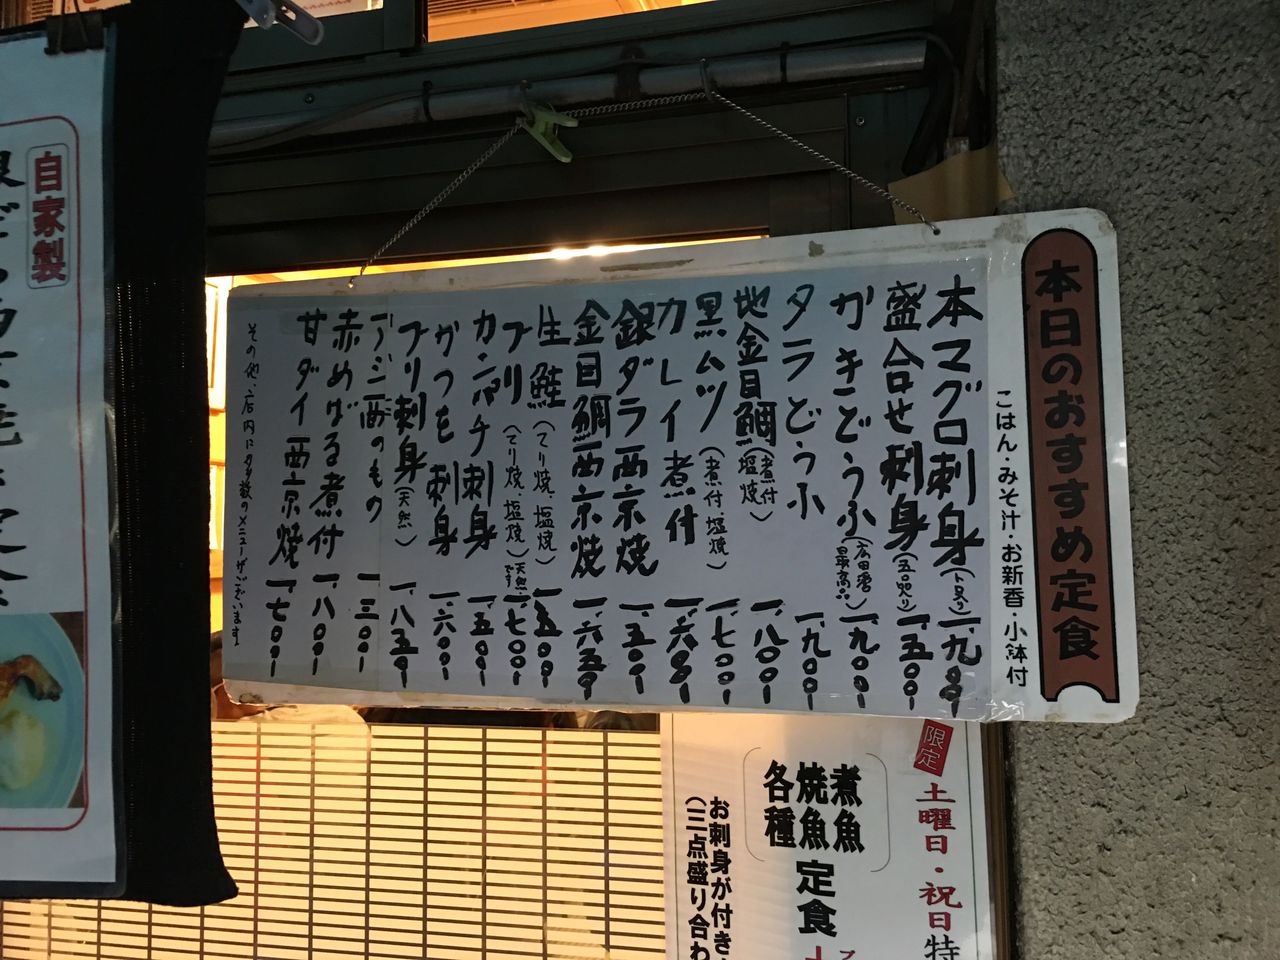 本日のおすすめ定食
ごはん・みそ汁・お新香・小鉢付
本マグロ刺身(トロ入り)一、九〇〇
盛合せ刺身(五品入り)一、五〇〇
かきどうふ(広田湾最高品)一、九〇〇
タラどうふ 一、九〇〇
地金目鯛(煮付 塩焼)一、八〇〇
黒ムツ(煮付、塩焼)一、七〇〇
カレイ煮付 一、六〇〇
銀ダラ西京焼 一、五〇〇
金目鯛西京焼 一、六五〇
生鮭(てり焼、塩焼)一、五〇〇
ブリ(てり焼、塩焼)天然です 一、七〇〇
カンパチ刺身 一、五〇〇
かつを刺身 一、六〇〇
ブリ刺身(天然)一、八五〇
アジ酢のもの 一、三〇〇
赤めばる煮付 一、八〇〇
甘ダイ西京焼 一、七〇〇
その他、店内に多数のメニューがございます
自家製
限定
土曜日・祝日特
煮魚
焼魚
各種
定食
お刺身が付き
(三点盛り合わ